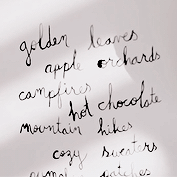 golden leaves
apple orchards
campfires
hot chocolate
mountain hikes
cozy sweaters
patches